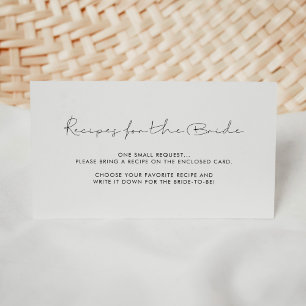 Recipes for the Bride
ONE SMALL REQUEST...
PLEASE BRING A RECIPE ON THE ENCLOSED CARD.
CHOOSE YOUR FAVORITE RECIPE AND
WRITE IT DOWN FOR THE BRIDE-TO-BE!